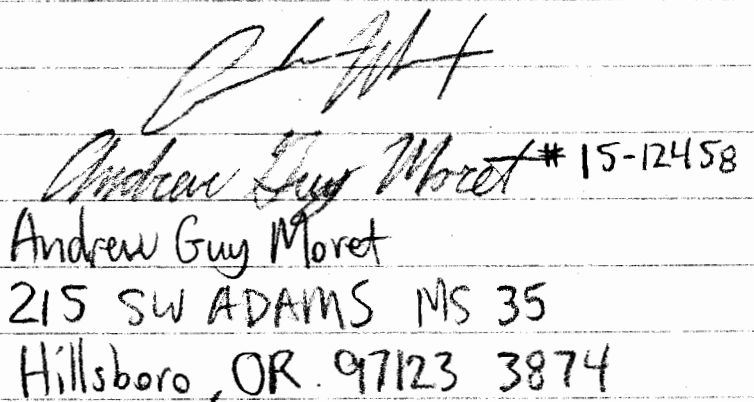 Andrew Guy Moret # 15-12458
Andrew Guy Moret
215 SW ADAMS MS 35
Hillsboro, OR. 97123 3874